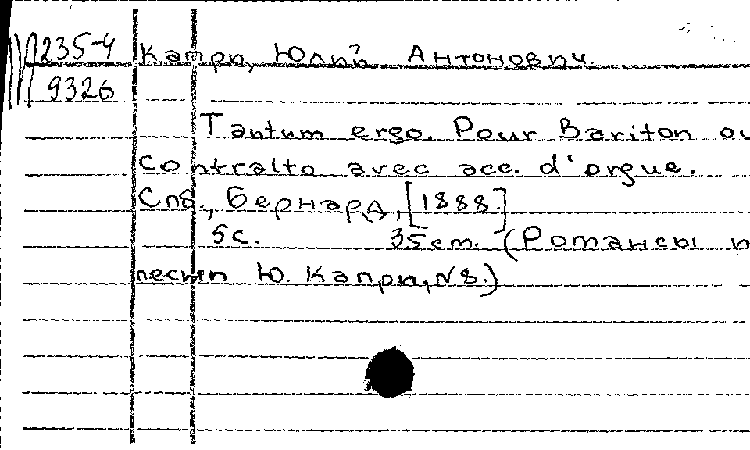 М 235-4
9326
Капри, Юлий Антонович.
Tantum ergo. Pour Bariton ou
Contralto avec acc. d'orgue.
Спб., Бернард, [1888.]
5 с. 35 см. (Романсы и
песни Ю. Капри, №8.)